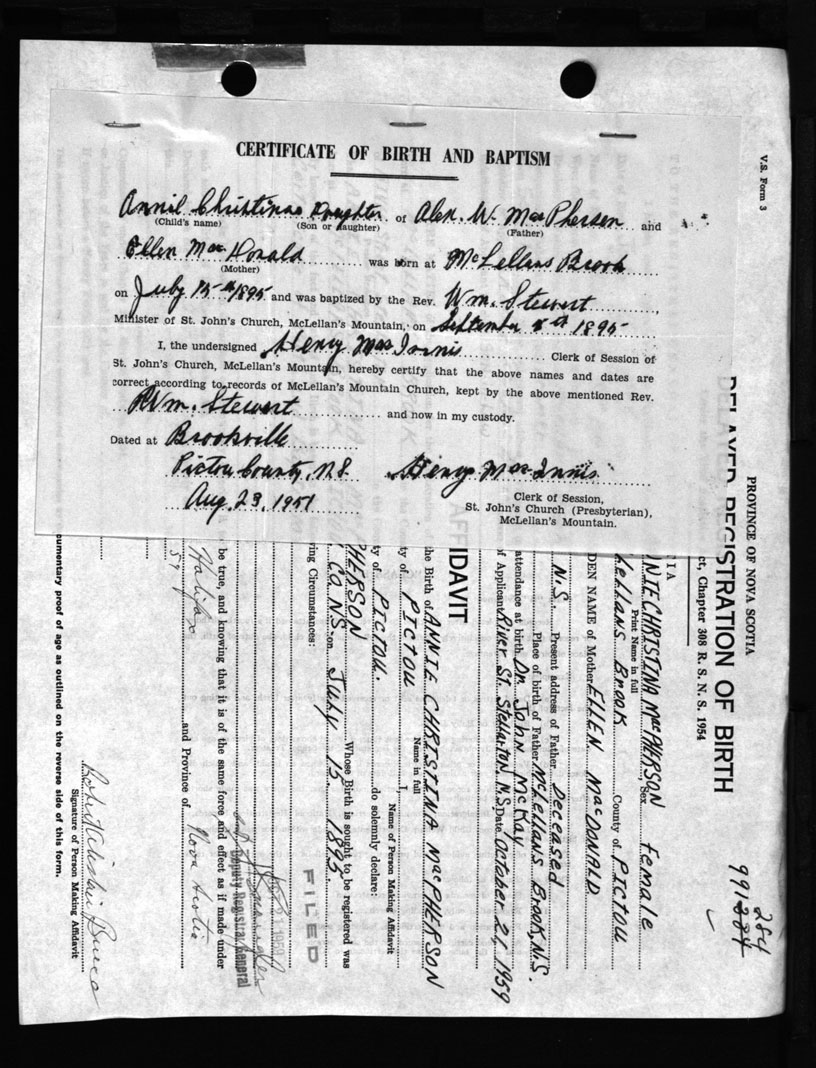 CERTIFICATE OF BIRTH AND BAPTISM
Annie Christina Daughter of Alex. W. MacPherson and
(Child's name) (Son or daughter) (Father)
Ellen MacDonald was born at McLellans Brook
(Mother)
on July 15th 1895 and was baptized by the Rev. Wm. Stewart,
Minister of St. John's Church, McLellan's Mountain, on September 1895
I, the undersigned Henry MacInnis Clerk of Session of
St. John's Church, McLellan's Mountain, hereby certify that the above names and dates are
correct according to records of McLellan's Mountain Church, kept by the above mentioned Rev.
Wm. Stewart and now in my custody.
Dated at Brookville
Pictou County, N.S. Henry MacInnis
Aug. 23, 1951
Clerk of Session,
St. John's Church (Presbyterian),
McLellan's Mountain.
V.S. Form 3
PROVINCE OF NOVA SCOTIA
DELAYED REGISTRATION OF BIRTH
ct, Chapter 308 R. S. N. S. 1954
991 384
284
TIA
NIE CHRISTINA MacPHERSON Sex Female
Print Name in full
Lellans Brook County of PICTOU
DEN NAME of Mother ELLEN MacDONALD
N.S. Present address of Father Deceased
Place of birth of Father McLellans Brook, N.S.
attendance at birth Dr. John McKay
of Applicant River St. Stellarton N.S. Date October 21, 1959
FIDAVIT
the Birth of ANNIE CHRISTINA MacPHERSON
Name in full
ty of PICTOU I,
Name of Person Making Affidavit
ty of PICTOU. do solemnly declare:
PHERSON Whose Birth is sought to be registered was
CO NS on July 15. 1895.
ving Circumstances:
FILED
21 1959
Deputy Registrar General
be true, and knowing that it is of the same force and effect as if made under
Halifax and Province of Nova Scotia
59
Signature of Person Making Affidavit
cumentary proof of age as outlined on the reverse side of this form.